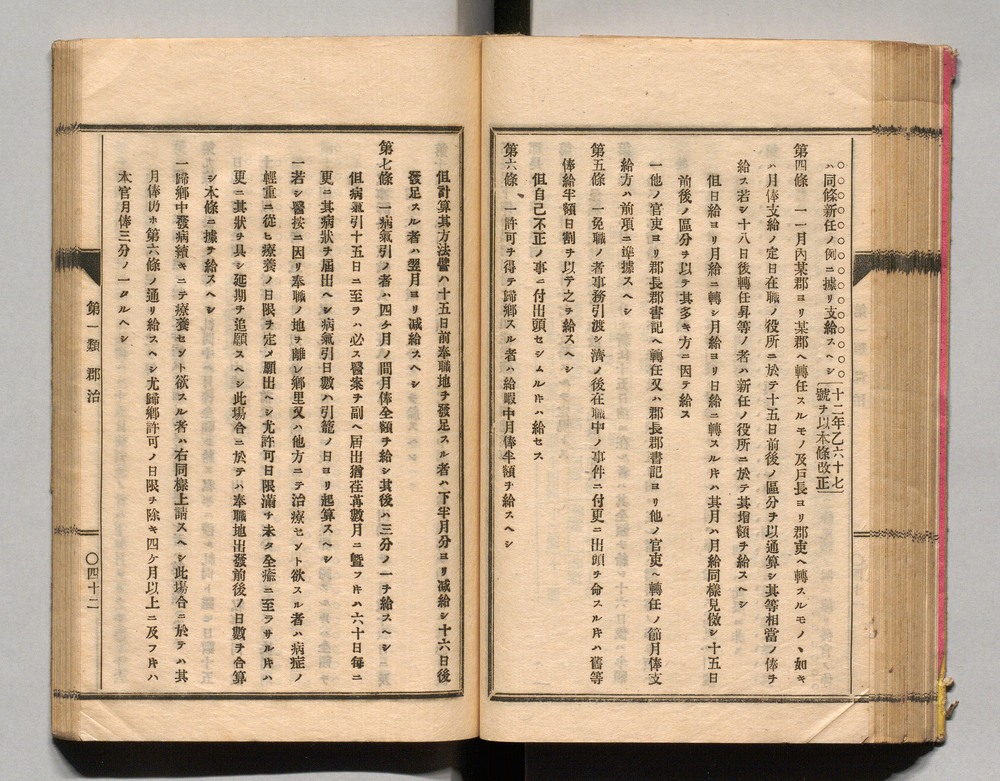 ハ同條新任ノ例ニ據リ支給スヘシ
十二年乙六十七
號ヲ以本條改正
第四條　一一月內某郡ヨリ某郡ヘ轉任スルモノ及戸長ヨリ郡吏ヘ轉スルモノヽ如キ
ハ月俸支給ノ定日在職ノ役所ニ於テ十五日前後ノ區分ヲ以通算シ其等相當ノ俸ヲ
給ス若シ十八日後轉任昇等ノ者ハ新任ノ役所ニ於テ其増額ヲ給スヘシ
但日給ヨリ月給ニ轉シ月給ヨリ日給ニ轉スル片ハ其月ハ月給同樣見做シ十五日
前後ノ區分ヲ以テ其多キ方ニ因テ給ス
一他ノ官吏ヨリ郡長郡書記ヘ轉任又ハ郡長郡書記ヨリ他ノ官吏ヘ轉任ノ節月俸支
給方ハ前項ニ準據スヘシ
第五條　一免職ノ者事務引渡シ濟ノ後在職中ノ事件ニ付更ニ出頭ヲ命スル片ハ舊等
俸給半額日割ヲ以テ之ヲ給スヘシ
但自己不正ノ事ニ付出頭セシムル片ハ給セス
第六條　一許可ヲ得テ歸鄉スル者ハ給暇中月俸半額ヲ給スヘシ
但計算其方法譬ハ十五日前奉職地ヲ發足スル者ハ下半月分ヨリ减給シ十六日後
發足スル者ハ翌月ヨリ减給スヘシ
第七條　一病氣引ノ者ハ四ヶ月ノ間月俸全額ヲ給シ其後ハ三分ノ一ヲ給スヘシ
但病氣引十五日ニ至ラハ必ス醫案ヲ副ヘ屆出猶荏苒數月ニ曁フ片ハ六十日每ニ
更ニ其病狀ヲ屆出ヘシ病氣引日數ハ引籠ノ日ヨリ起算スヘシ
一若シ醫按ニ因リ奉職ノ地ヲ離レ鄉里又ハ他方ニテ治療セント欲スル者ハ病症ノ
輕重ニ從ヒ療養ノ日限ヲ定メ願出ヘシ尤許可日限滿チ未タ全癒ニ至ラサル片ハ
更ニ其狀ヲ具シ延期ヲ追願スヘシ此場合ニ於テハ奉職地出發前後ノ日數ヲ合算
シ本條ニ據テ給スヘシ
一歸鄉中發病續キニテ療養セント欲スル者ハ右同樣上請スヘシ此場合ニ於テハ其
月俸仍ホ第六條ノ通リ給スヘシ尤歸鄉許可ノ日限ヲ除キ四ケ月以上ニ及フ片ハ
本官月俸三分ノ一タルヘシ
第一類　郡治
〇四十二